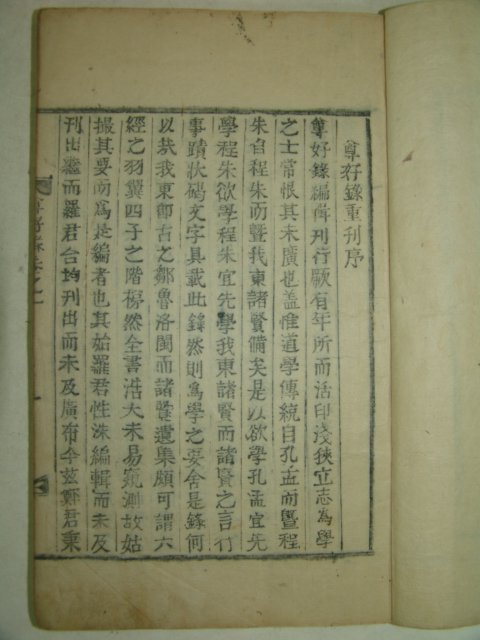 尊好錄重刊序
尊好錄編輯刊行厥有年所而活印淺狹立志為學
之士常恨其未廣也盖惟道學傳統自孔孟而曁程
朱自程朱而曁我東諸賢備矣是以欲學孔孟宜先
學程朱欲學程朱宜先學我東諸賢而諸賢之言行
事蹟狀碣文字具載此錄然則為學之要舍是錄何
以哉我東卽古之鄒魯洛閩而諸賢遺集頗可謂六
經之羽翼四子之階梯然全書浩大未易窺測故姑
撮其要而為是編者也其始羅君性洙編輯而未及
刊出繼而羅君台均刊出而未及廣布今玆鄭君秉
尊好錄卷之一